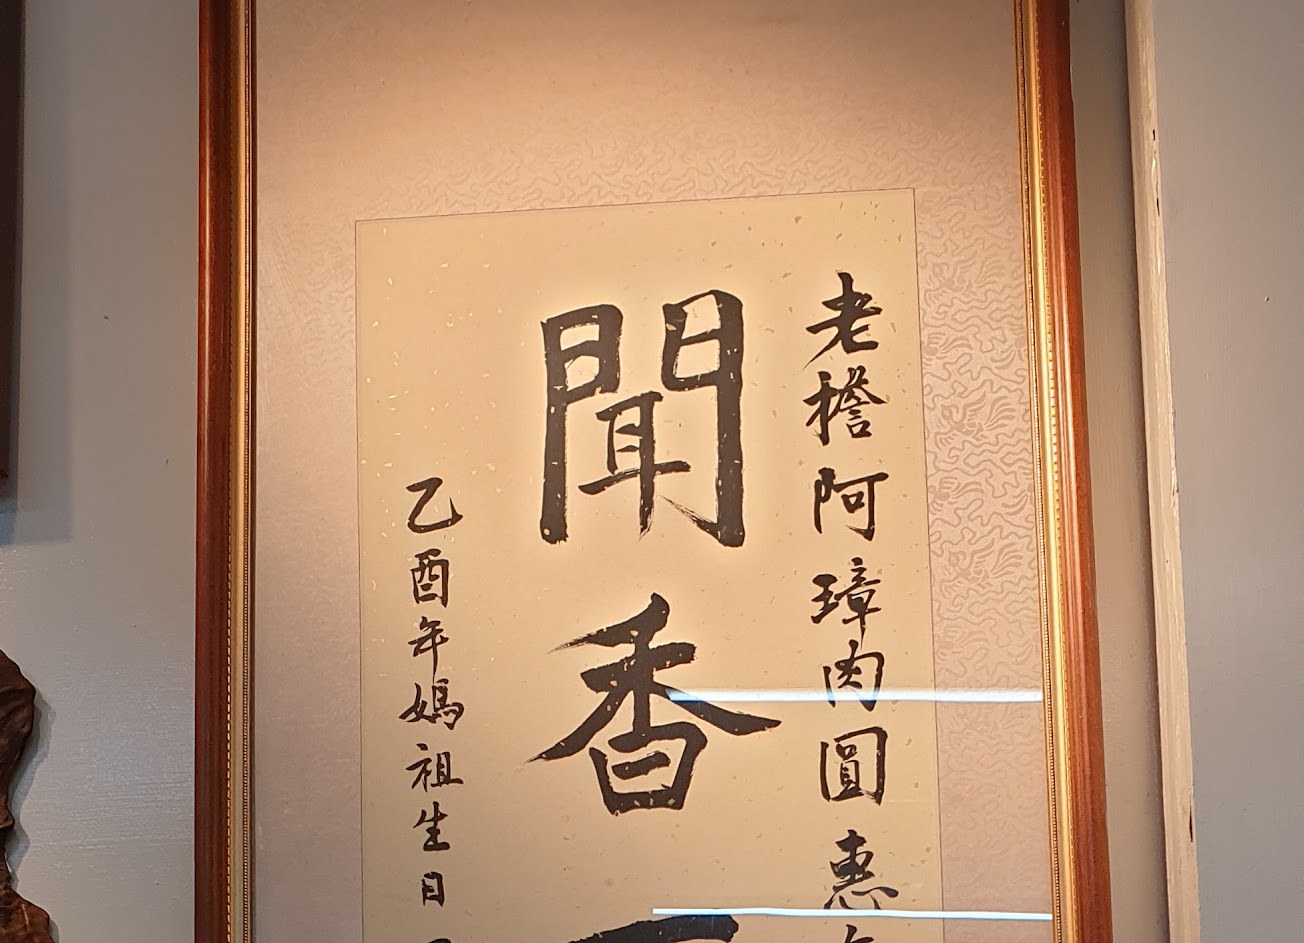 老檐阿璋肉圓惠
聞香
乙酉年媽祖生日